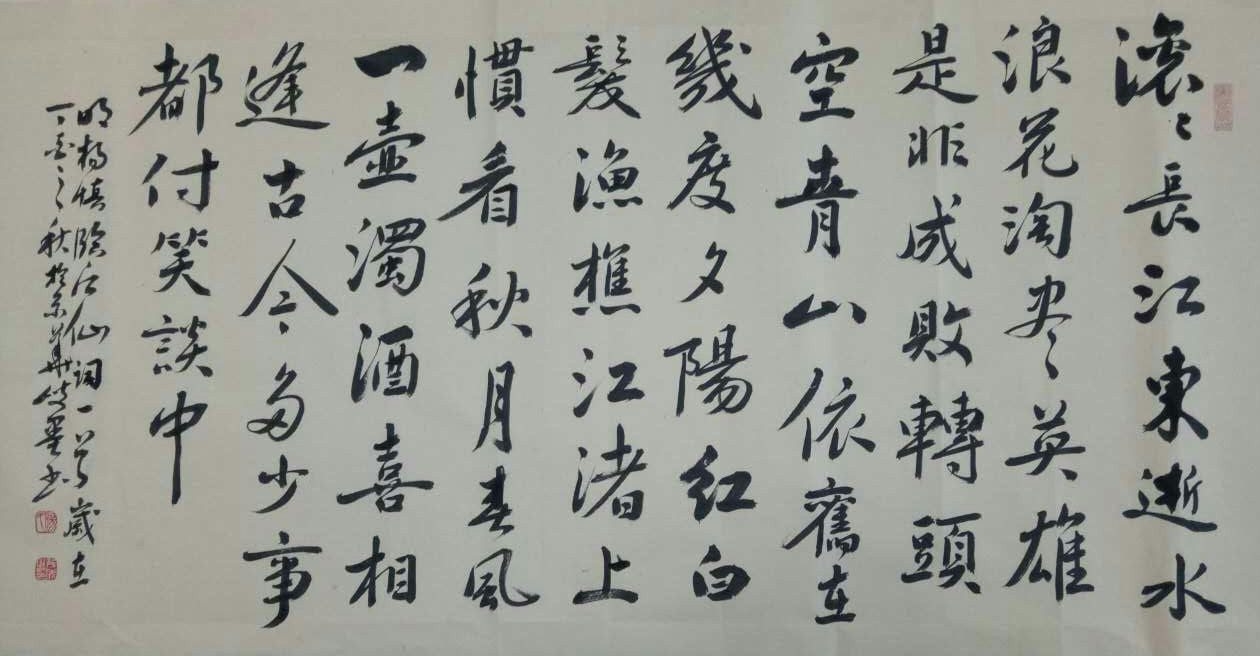 滚〻長江東逝水
浪花淘尽英雄
是非成敗轉頭
空青山依舊在
幾度夕陽紅白
髮漁樵江渚上
慣看秋月春風
一壺濁酒喜相
逢古今多少事
都付笑談中
明楊慎臨江仙詞一首歲在
丁酉之秋於京華墨书